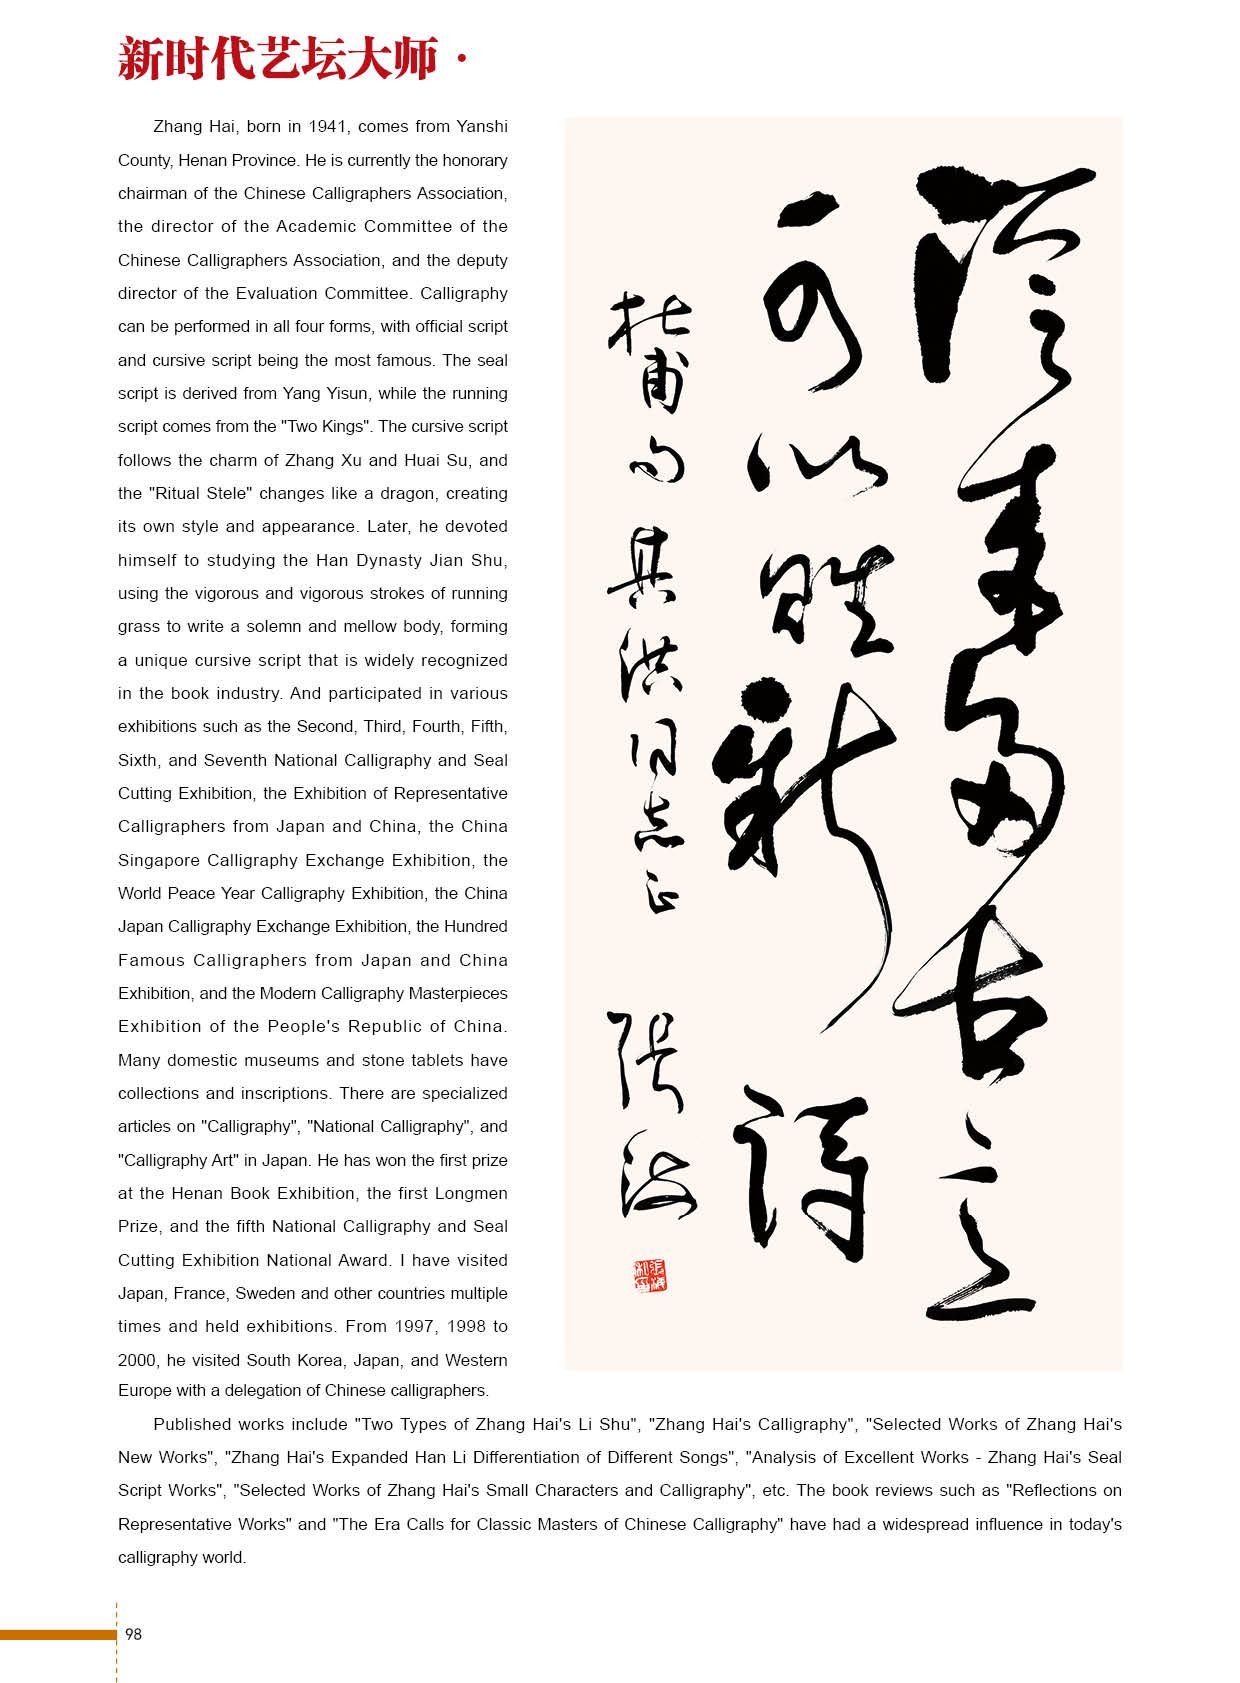 新时代艺坛大师 ·
Zhang Hai, born in 1941, comes from Yanshi
County, Henan Province. He is currently the honorary
chairman of the Chinese Calligraphers Association,
the director of the Academic Committee of the
Chinese Calligraphers Association, and the deputy
director of the Evaluation Committee. Calligraphy
can be performed in all four forms, with official script
and cursive script being the most famous. The seal
script is derived from Yang Yisun, while the running
script comes from the "Two Kings". The cursive script
follows the charm of Zhang Xu and Huai Su, and
the "Ritual Stele" changes like a dragon, creating
its own style and appearance. Later, he devoted
himself to studying the Han Dynasty Jian Shu,
using the vigorous and vigorous strokes of running
grass to write a solemn and mellow body, forming
a unique cursive script that is widely recognized
in the book industry. And participated in various
exhibitions such as the Second, Third, Fourth, Fifth,
Sixth, and Seventh National Calligraphy and Seal
Cutting Exhibition, the Exhibition of Representative
Calligraphers from Japan and China, the China
Singapore Calligraphy Exchange Exhibition, the
World Peace Year Calligraphy Exhibition, the China
Japan Calligraphy Exchange Exhibition, the Hundred
Famous Calligraphers from Japan and China
Exhibition, and the Modern Calligraphy Masterpieces
Exhibition of the People's Republic of China.
Many domestic museums and stone tablets have
collections and inscriptions. There are specialized
articles on "Calligraphy", "National Calligraphy", and
"Calligraphy Art" in Japan. He has won the first prize
at the Henan Book Exhibition, the first Longmen
Prize, and the fifth National Calligraphy and Seal
Cutting Exhibition National Award. I have visited
Japan, France, Sweden and other countries multiple
times and held exhibitions. From 1997, 1998 to
2000, he visited South Korea, Japan, and Western
Europe with a delegation of Chinese calligraphers.
從來多古意
可以賦新詩
杜甫句 其洪同志正 张海
Published works include "Two Types of Zhang Hai's Li Shu", "Zhang Hai's Calligraphy", "Selected Works of Zhang Hai's
New Works", "Zhang Hai's Expanded Han Li Differentiation of Different Songs", "Analysis of Excellent Works - Zhang Hai's Seal
Script Works", "Selected Works of Zhang Hai's Small Characters and Calligraphy", etc. The book reviews such as "Reflections on
Representative Works" and "The Era Calls for Classic Masters of Chinese Calligraphy" have had a widespread influence in today's
calligraphy world.
98